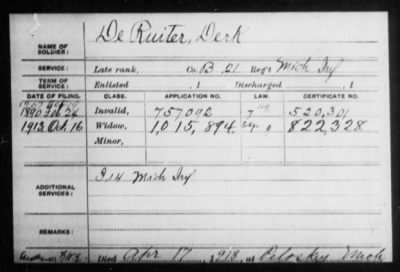 De Ruiter, Derk
NAME OF SOLDIER:
SERVICE: Late rank, Co. B 21 Reg't Mich Inf
TERM OF SERVICE: Enlisted , 1 Discharged , 1
DATE OF FILING. CLASS. APPLICATION NO. LAW. CERTIFICATE NO.
1890 Feb 24 Invalid, 757092 520,301
1913 Oct. 16 Widow, 1015,894 822,328
Minor,
ADDITIONAL SERVICES: I 14 Mich Inf
REMARKS:
Died Apr 17, 1913, at Petoskey Mich